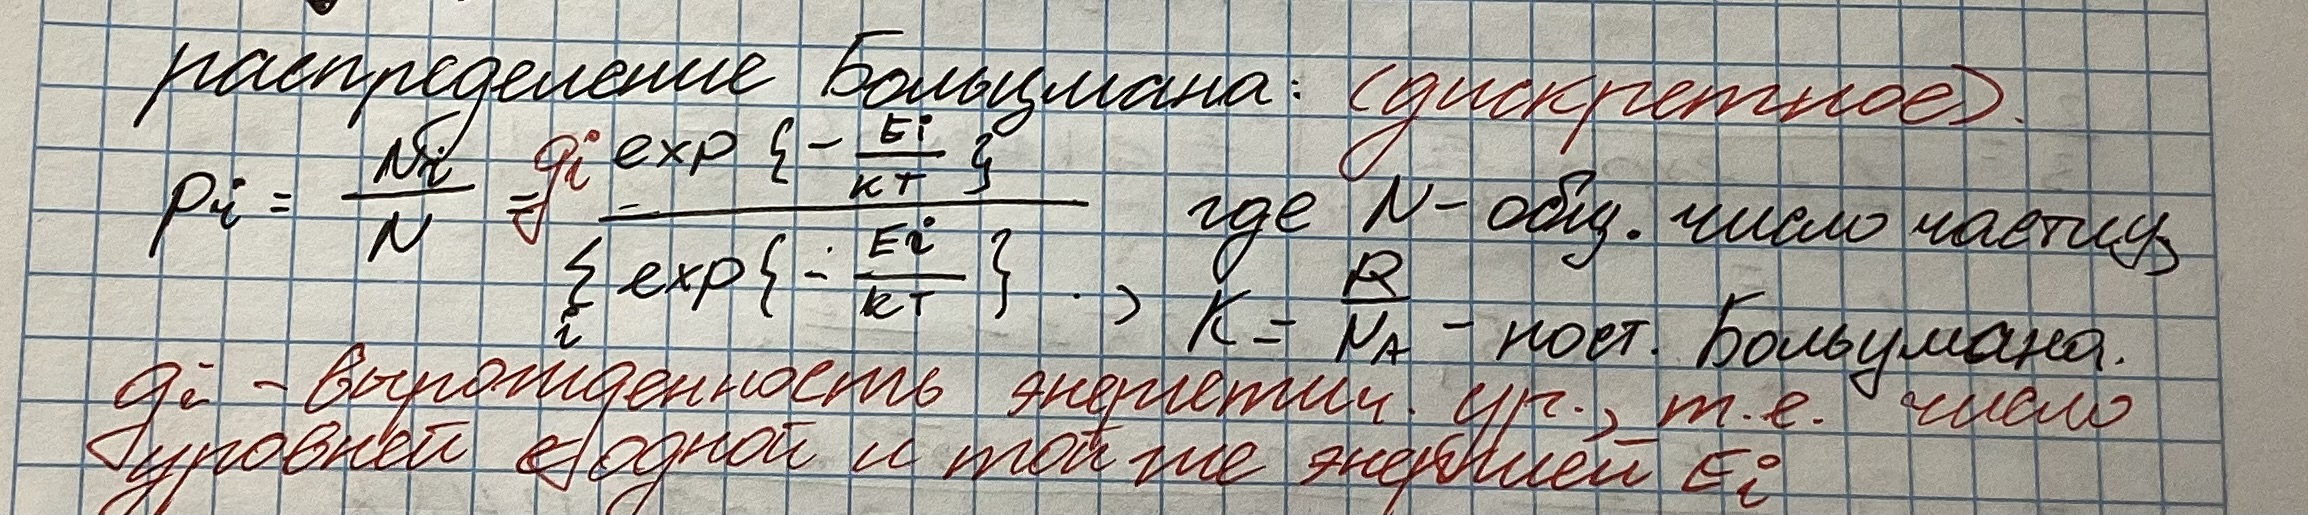 распределение Больцмана: (дискретное).
Pi = Ni/N = gi exp{-Ei/кТ} / Σi exp{-Ei/кТ}, где N - общ. число частиц,
K = R/NA - пост. Больцмана.
gi - вырожденность энергетич. ур., т.е. число
уровней с одной и той же энергией Ei